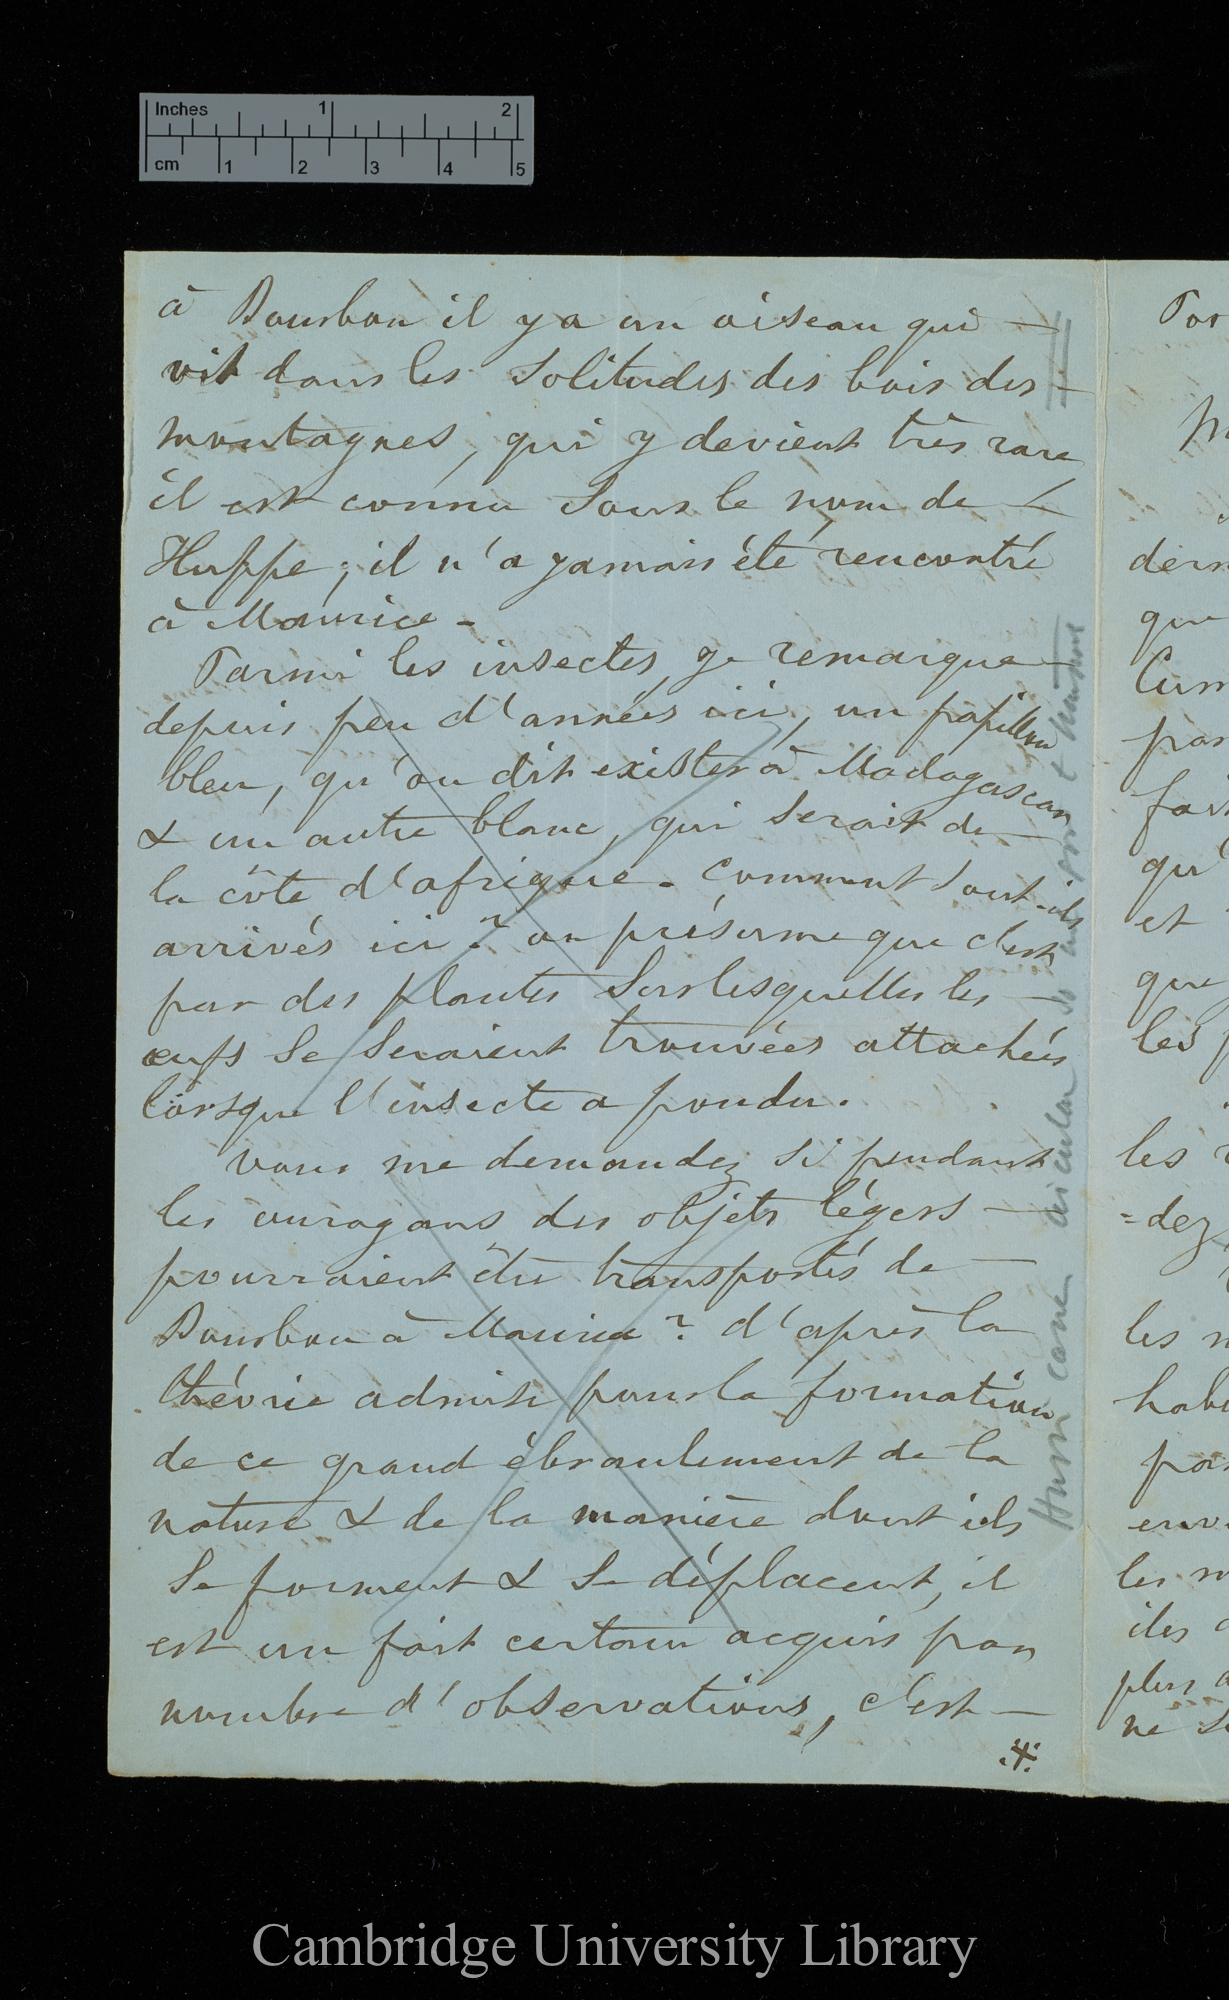 Inches 1 2
cm 1 2 3 4 5
à Bourbon il y a un oiseau qui —
vit dans les Solitudes des bois des —
montagnes, qui y devient très rare
il est connu Sous le nom de —
Huppe; il n'a jamais été rencontré
à Maurice -
Parmi les insectes, je remarque —
depuis peu d'années ici, un papillon
bleu, qu'on dit exister à Madagascar
& un autre blanc, qui Serait de —
la côte d'afrique. Comment Sont-ils
arrivés ici? on présume que c'est
par des plantes Sur lesquelles les —
œufs Se Seraient trouvées attachées
lorsque l'insecte a pondu.
Vous me demandez Si pendant
les ouragans des objets légers —
pourraient être transportés de —
Bourbon à Maurice? d'après la
théorie admise pour la formation
de ce grand ébranlement de la
nature & de la manière dont ils
Se forment & Se déplacent, il
est un fait certain acquis par
nombre d'observations, c'est —
.#.
Hurricane circular so will not
Por
M
dern
que
Cur
par
fai
qu'
et
que
les p
les
=dez
les m
habi
par
env
les m
iles
plus
ne S
Cambridge University Library